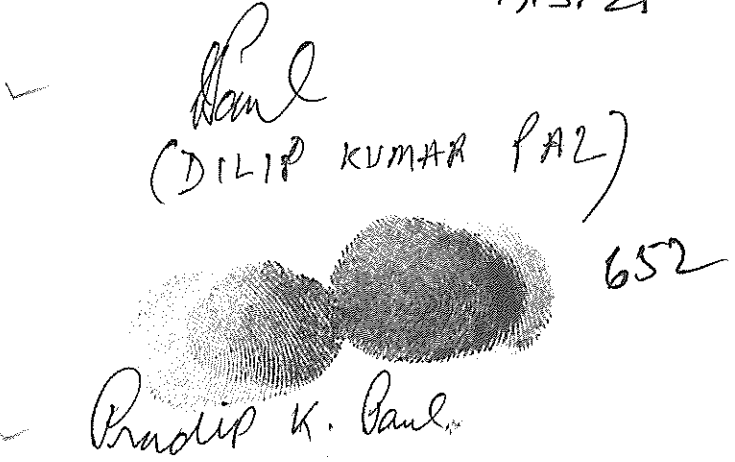 (DILIP KUMAR PAL)
652
Pradip K. Paul.